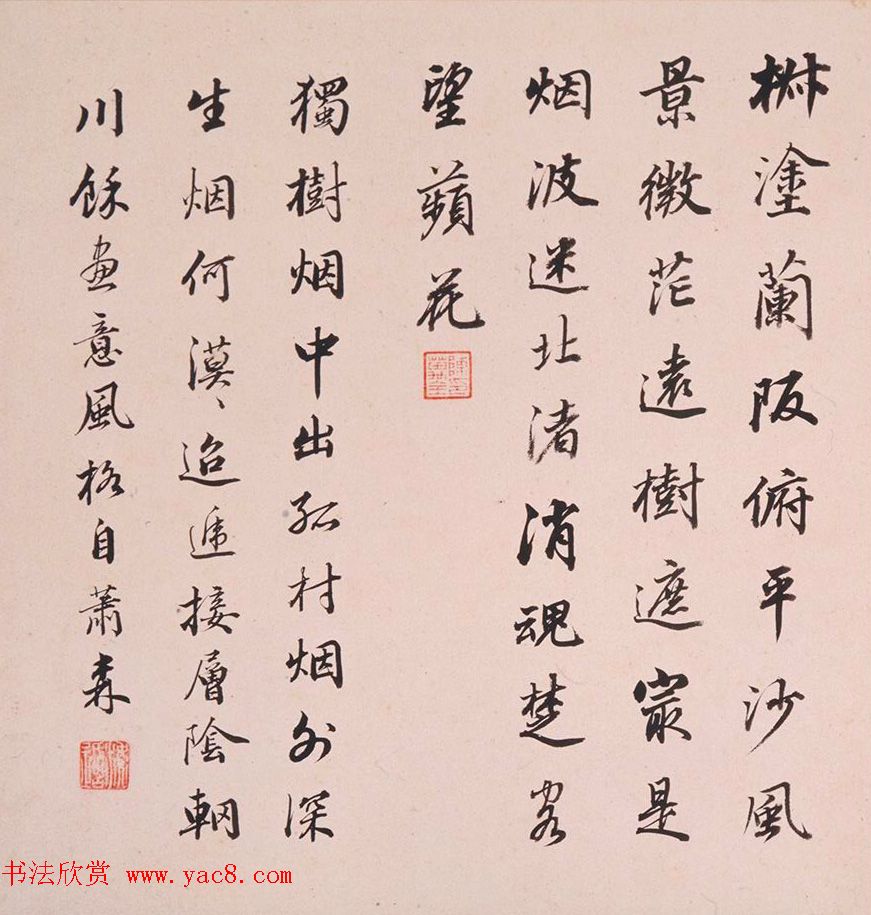 椒塗蘭阪俯平沙風
景微茫遠樹遮㝡是
烟波迷北渚消魂楚客
望蘋花
獨樹烟中出孤村烟外深
生烟何漠〻迢遞接層陰輞
川餘畫意風格自蕭森
书法欣赏 www.yac8.com